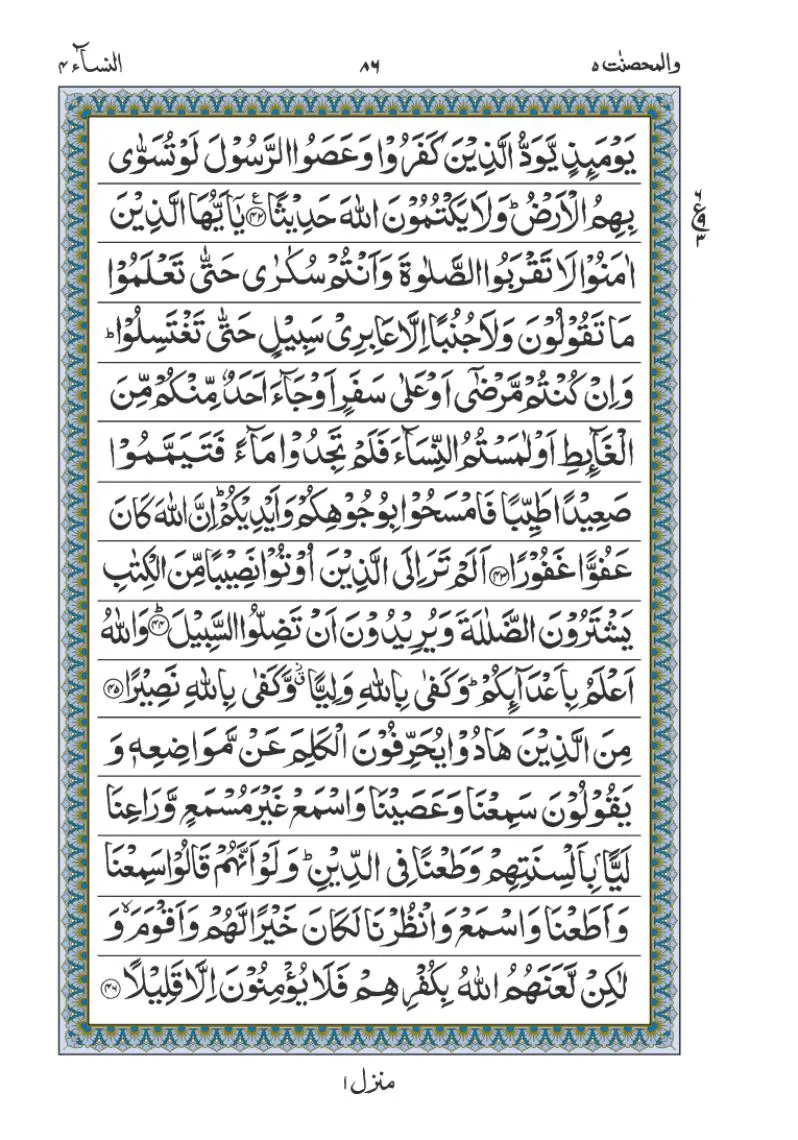 والمحصنٰت ٥ ٨٦ النسآء ٤
يَوۡمَئِذٍ يَّوَدُّ الَّذِيۡنَ كَفَرُوۡا وَعَصَوُا الرَّسُوۡلَ لَوۡ تُسَوّٰى
بِهِمُ الۡاَرۡضُؕ وَلَا يَكۡتُمُوۡنَ اللّٰهَ حَدِيۡثًا ﴿۴۲﴾ ع يٰۤاَيُّهَا الَّذِيۡنَ
اٰمَنُوۡا لَا تَقۡرَبُوا الصَّلٰوةَ وَاَنۡتُمۡ سُكَارٰى حَتّٰى تَعۡلَمُوۡا
مَا تَقُوۡلُوۡنَ وَلَا جُنُبًا اِلَّا عَابِرِىۡ سَبِيۡلٍ حَتّٰى تَغۡتَسِلُوۡاؕ
وَاِنۡ كُنۡتُمۡ مَّرۡضٰۤى اَوۡ عَلٰى سَفَرٍ اَوۡ جَآءَ اَحَدٌ مِّنۡكُمۡ مِّنَ
الۡغَآئِطِ اَوۡ لٰمَسۡتُمُ النِّسَآءَ فَلَمۡ تَجِدُوۡا مَآءً فَتَيَمَّمُوۡا
صَعِيۡدًا طَيِّبًا فَامۡسَحُوۡا بِوُجُوۡهِكُمۡ وَاَيۡدِيۡكُمۡؕ اِنَّ اللّٰهَ كَانَ
عَفُوًّا غَفُوۡرًا ﴿۴۳﴾ اَلَمۡ تَرَ اِلَى الَّذِيۡنَ اُوۡتُوۡا نَصِيۡبًا مِّنَ الۡكِتٰبِ
يَشۡتَرُوۡنَ الضَّلٰلَةَ وَيُرِيۡدُوۡنَ اَنۡ تَضِلُّوا السَّبِيۡلَؕ ﴿۴۴﴾ وَاللّٰهُ
اَعۡلَمُ بِاَعۡدَآئِكُمۡؕ وَكَفٰى بِاللّٰهِ وَلِيًّا ۙ وَّكَفٰى بِاللّٰهِ نَصِيۡرًا ﴿۴۵﴾
مِنَ الَّذِيۡنَ هَادُوۡا يُحَرِّفُوۡنَ الۡكَلِمَ عَنۡ مَّوَاضِعِهٖ وَ
يَقُوۡلُوۡنَ سَمِعۡنَا وَعَصَيۡنَا وَاسۡمَعۡ غَيۡرَ مُسۡمَعٍ وَّرَاعِنَا
لَيًّۢا بِاَلۡسِنَتِهِمۡ وَطَعۡنًا فِى الدِّيۡنِؕ وَلَوۡ اَنَّهُمۡ قَالُوۡا سَمِعۡنَا
وَاَطَعۡنَا وَاسۡمَعۡ وَانْظُرۡنَا لَكَانَ خَيۡرًا لَّهُمۡ وَاَقۡوَمَ ۙ وَ
لٰكِنۡ لَّعَنَهُمُ اللّٰهُ بِكُفۡرِهِمۡ فَلَا يُؤۡمِنُوۡنَ اِلَّا قَلِيۡلًا ﴿۴۶﴾
٦
ع ٩
٣
منزل ١